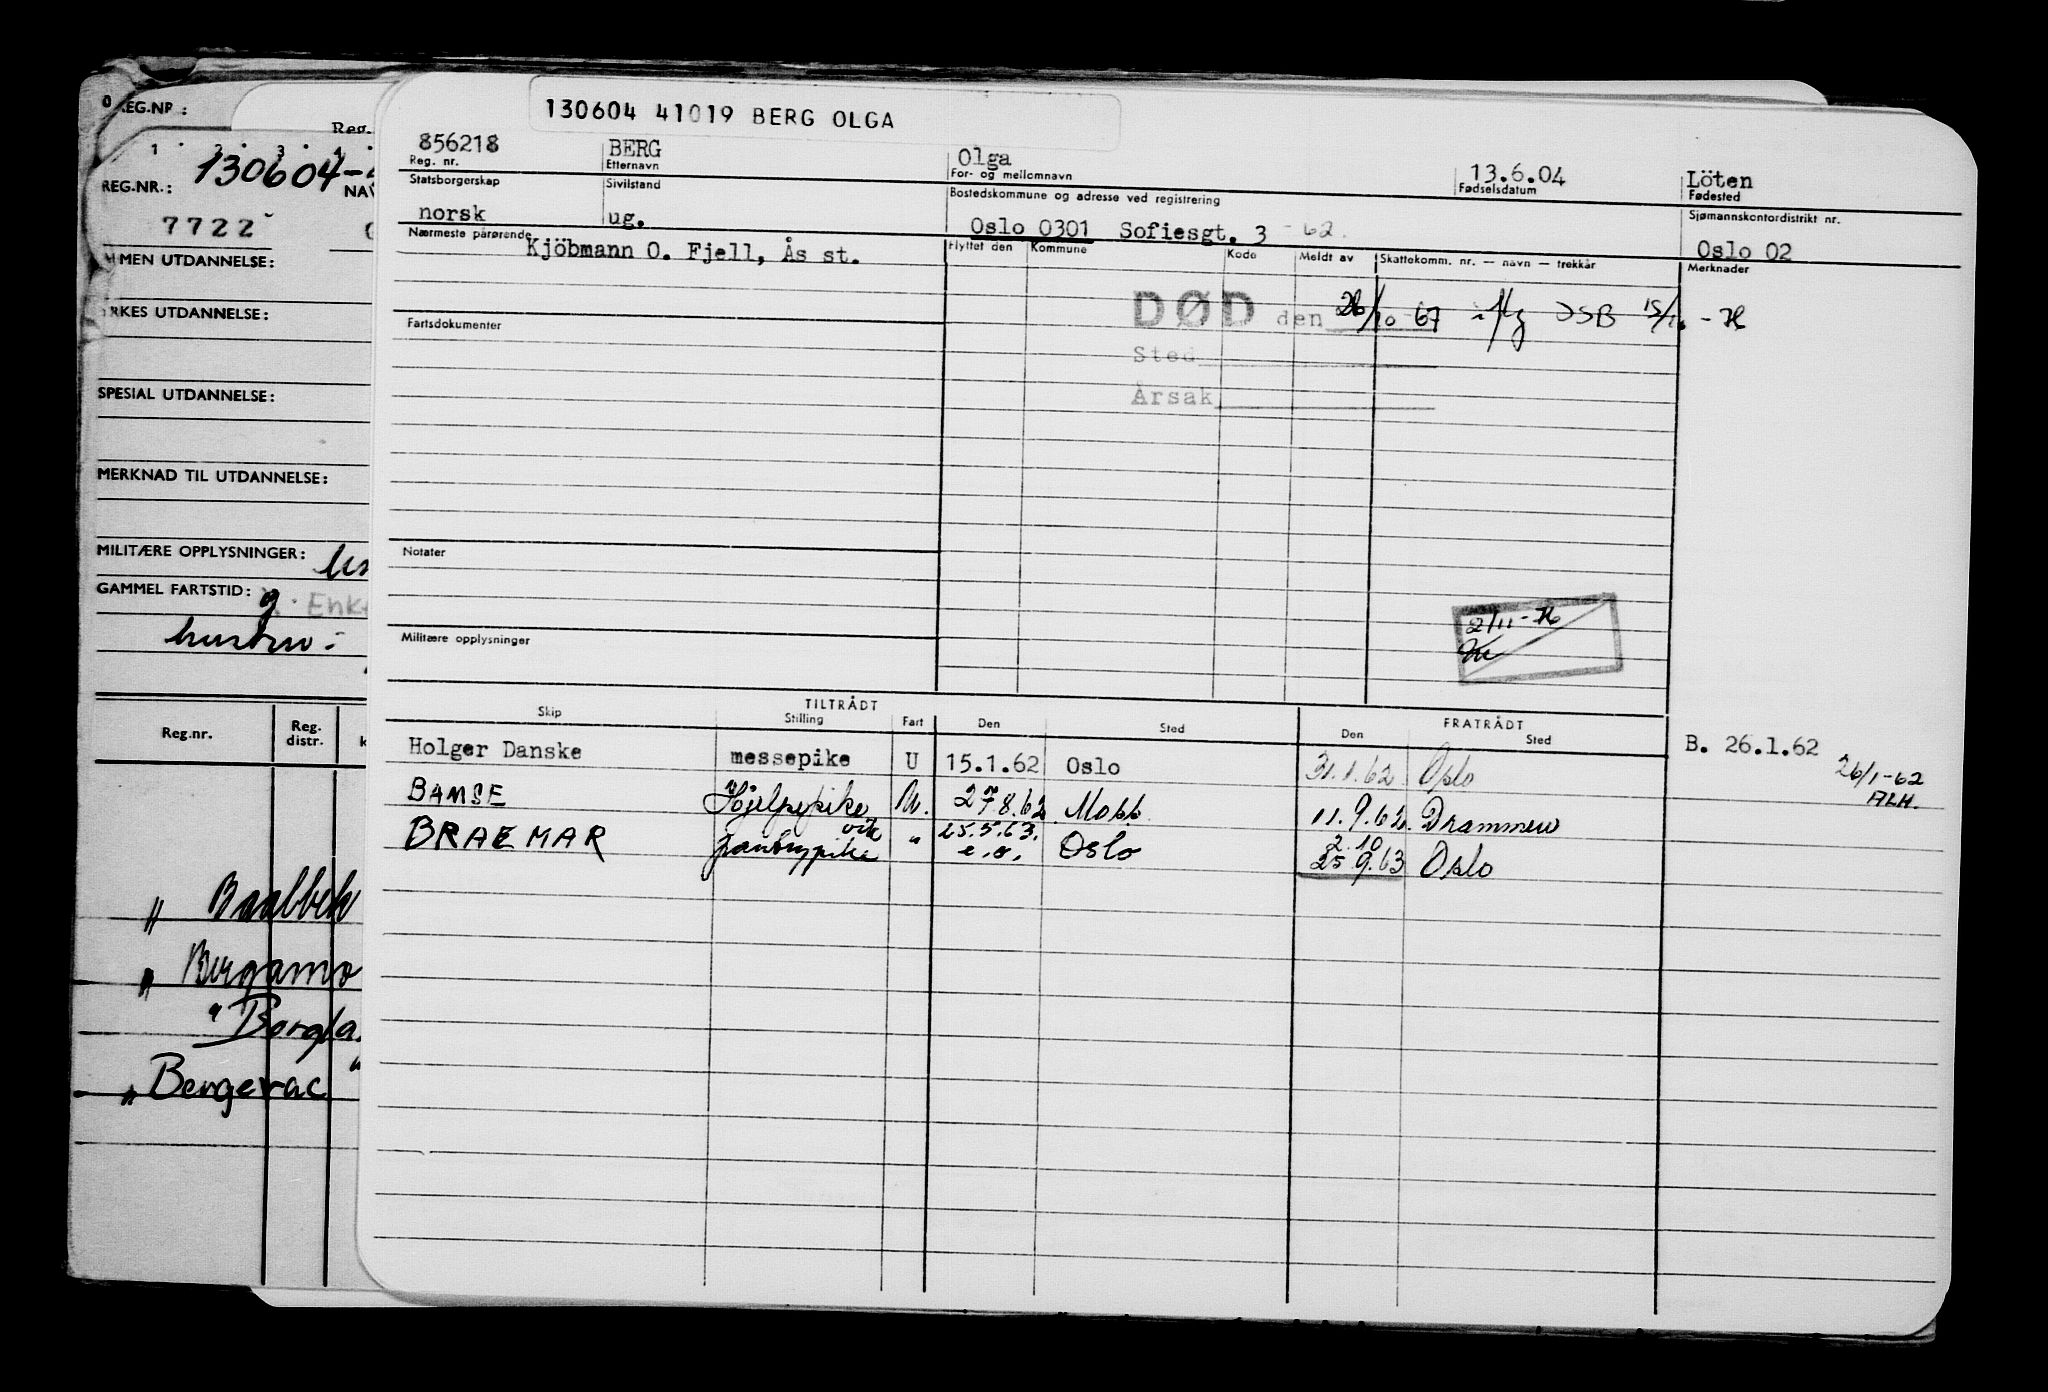 130604 41019 BERG OLGA
856218 BERG Olga 13.6.04 Löten
Reg. nr. Etternavn For- og mellomnavn Fødselsdatum Fødested
Statsborgerskap Sivilstand Bostedskommune og adresse ved registrering Sjømannskontordistrikt nr.
norsk ug. Oslo 0301 Sofiesgt. 3 - 62. Oslo 02
Nærmeste pårørende Kjöbmann O. Fjell, Ås st. Flyttet den Kommune Kode Meldt av Skattekomm. nr. — navn — trekkår Merknader
DØD den 26/10 67
Fartsdokumenter
Sted
Årsak
Notater
2/11-76
Militære opplysninger
TILTRÅDT FRATRÅDT
Skip Stilling Fart Den Sted Den Sted
Holger Danske messepike U 15.1.62 Oslo 31.1.62 Oslo B. 26.1.62 26/1-62
ALH.
BAMSE Hjelpepike U. 27.8.62 Moss 11.9.62 Drammen
BRAEMAR pantrypike vik " 25.5.63. e.o. Oslo 2.10 25 9.63 Oslo
REG.NR.:
Reg.
1 2 3 4
REG.NR.: 130604- NAV
7722
MEN UTDANNELSE:
RKES UTDANNELSE:
SPESIAL UTDANNELSE:
MERKNAD TIL UTDANNELSE:
MILITÆRE OPPLYSNINGER:
GAMMEL FARTSTID: g. Enk
Reg.nr. Reg. distr. k
" Baalbek
" Bergamo
" Borgla
" Bergerac "